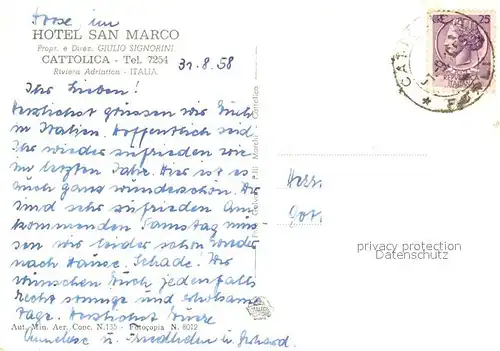 im
HOTEL SAN MARCO
Propr. e Direz. GIULIO SIGNORINI
CATTOLICA - Tel. 7254
Riviera Adriatica - ITALIA
31.8.58
25
Ihr Lieben!
Herzlichst grüssen wir Euch
in Italien. Hoffentlich seid
Ihr wieder zufrieden wie
im letzten Jahre. Hier ist es
auch ganz wunderschön. Wir
sind sehr zufrieden. Am
kommenden Samstag müs-
sen wir leider schon wieder
nach Hause. Schade. Wir
wünschen Euch jedenfalls
recht sonnige und erholsame
Tage. Herzlichst Eure
Anneliese u. Friedhelm u. Gerhard.
Herr.
Got.
privacy protection
Datenschutz
Aut. Min. Aer. Conc. N. 135 - Fotocopia N. 8012